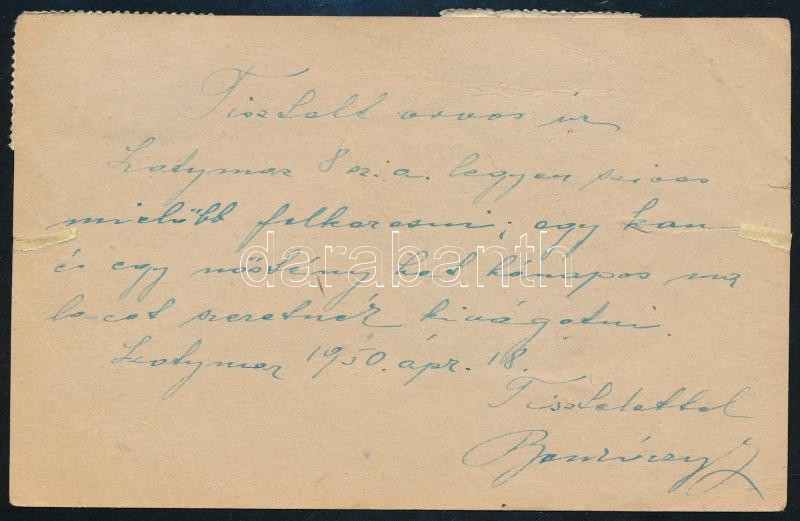 Tisztelt orvos úr
Katymár 8 sz. a. legyen szives
mielőbb felkeresni; egy kan
és egy nőstény hat hónapos ma
lacot szeretnék kivágatni.
Katymár 1950. ápr. 18.
Tisztelettel
darabanth